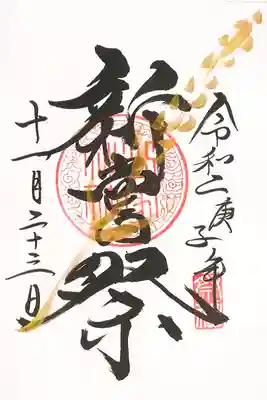 令和二庚子年
新嘗祭
十一月二十三日